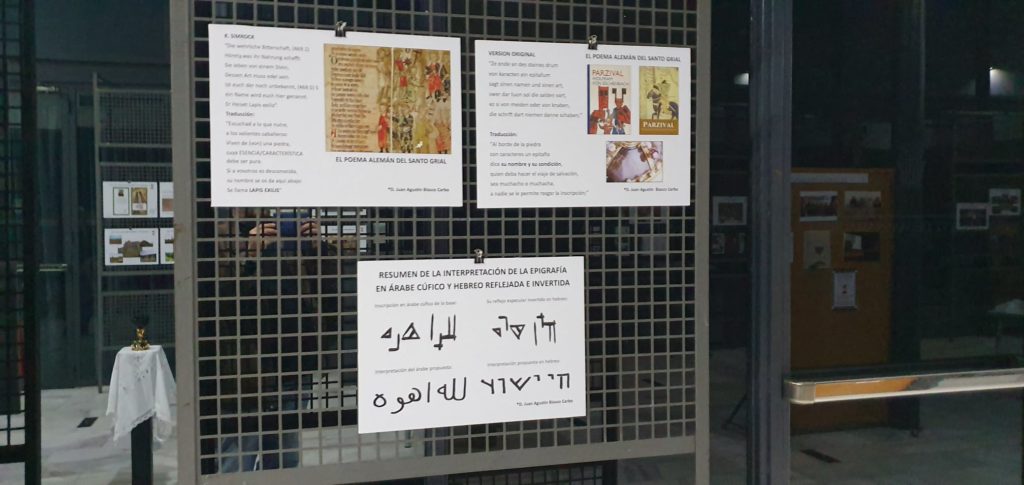 K. SIMROCK
"Die wehrliche Ritterschaft, (469.1)
Sie leben von einem Stein,
Dessen Art muss edel sein.
Ist euch der noch unbekannt, (469.5) 5
ein Name wird euch hier genannt.
Er heisset Lapis exilis".
Traducción:
"Escuchad a lo que nutre,
a los valientes caballeros
Viven de (von) una piedra,
cuya ESENCIA/CARACTERÍSTICA
debe ser pura.
Si a vosotros es desconocida,
su nombre se os da aquí abajo:
Se llama LAPIS EXILIS"
EL POEMA ALEMÁN DEL SANTO GRIAL
*D. Juan Agustín Blasco Carbo
VERSION ORIGINAL
"Ze ende an des steines drum
von karacten ein epitafum
sagt sinen namen und sinen art,
swer dar tuon sol die salden vart,
ez si von meiden oder von knaben,
die schrift dart niemen danne schaben."
Traducción:
"Al borde de la piedra
con caracteres un epitafio
dice su nombre y su condición,
quien deba hacer el viaje de salvación,
sea muchacho o muchacha,
a nadie se le permite rasgar la inscripción;"
EL POEMA ALEMÁN DEL SANTO GRIAL
PARZIVAL
WOLFRAM VON ESCHENBACH
PARZIVAL
*D. Juan Agustín Blasco Carbo
RESUMEN DE LA INTERPRETACIÓN DE LA EPIGRAFÍA
EN ÁRABE CÚFICO Y HEBREO REFLEJADA E INVERTIDA
Inscripción en árabe cúfico de la base:
Su reflejo especular invertido en hebreo:
Interpretación del árabe propuesta:
Interpretación propuesta en hebreo:
لله اهوه
*D. Juan Agustín Blasco Carbo